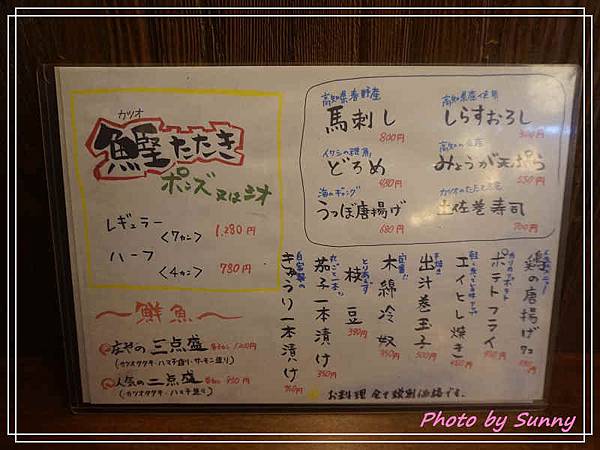 カツオ
鰹たたき
ポンズ又はシオ
レギュラー
〈7カン〉 1,280円
ハーフ
〈4カン〉 780円
〜鮮魚〜
三点盛
(カツオタタキ・ハマチ造り・サーモン造り)
人気の二点盛
(カツオタタキ・ハマチ造り)
高知県香野産
馬刺し
800円
高知県産使用
しらすおろし
300円
イワシの稚魚
どろめ
高知の名産
みょうが天ぷら
550円
海のギャング
うつぼ唐揚げ
680円
土佐巻寿司
700円
鶏の唐揚げ
ポテトフライ
エイヒレ焼き
出汁巻玉子
500円
定番!!
木綿冷奴
350円
とりあえず
枝豆
380円
茄子一本漬け
350円
自家製の
きゅうり一本漬け
お料理全て税別価格です。
Photo by Sunny